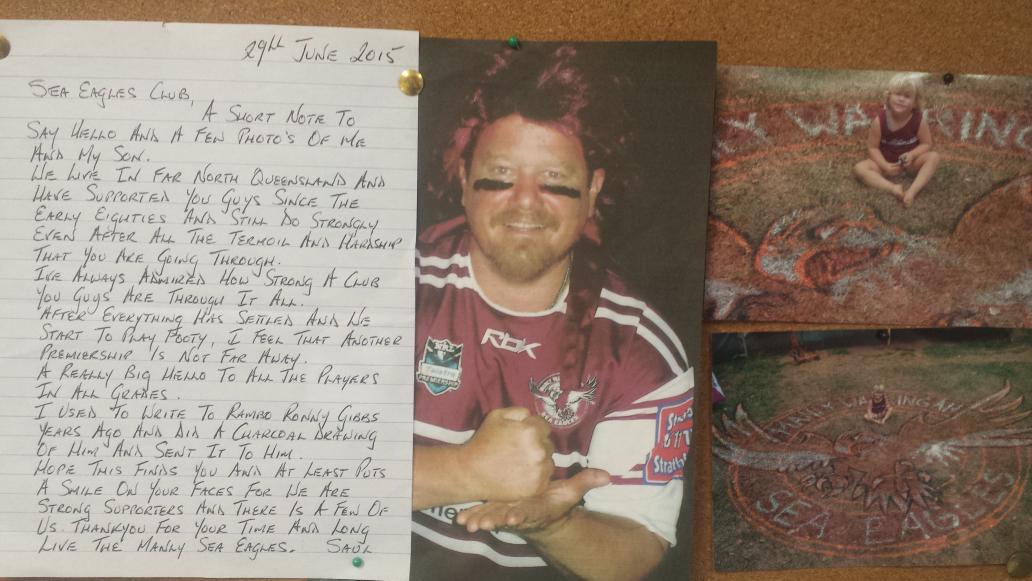 29th JUNE 2015
SEA EAGLES CLUB,
A SHORT NOTE TO
SAY HELLO AND A FEW PHOTO'S OF ME
AND MY SON.
WE LIVE IN FAR NORTH QUEENSLAND AND
HAVE SUPPORTED YOU GUYS SINCE THE
EARLY EIGHTIES AND STILL DO STRONGLY
EVEN AFTER ALL THE TERMOIL AND HARDSHIP
THAT YOU ARE GOING THROUGH.
IVE ALWAYS ADMIRED HOW STRONG A CLUB
YOU GUYS ARE THROUGH IT ALL.
AFTER EVERYTHING HAS SETTLED AND WE
START TO PLAY FOOTY, I FEEL THAT ANOTHER
PREMIERSHIP IS NOT FAR AWAY.
A REALLY BIG HELLO TO ALL THE PLAYERS
IN ALL GRADES.
I USED TO WRITE TO RAMBO RONNY GIBBS
YEARS AGO AND DID A CHARCOAL DRAWING
OF HIM AND SENT IT TO HIM.
HOPE THIS FINDS YOU AND AT LEAST PUTS
A SMILE ON YOUR FACES FOR WE ARE
STRONG SUPPORTERS AND THERE IS A FEW OF
US. THANKYOU FOR YOUR TIME AND LONG
LIVE THE MANLY SEA EAGLES. SAUL
RBK
SEA EAGLES